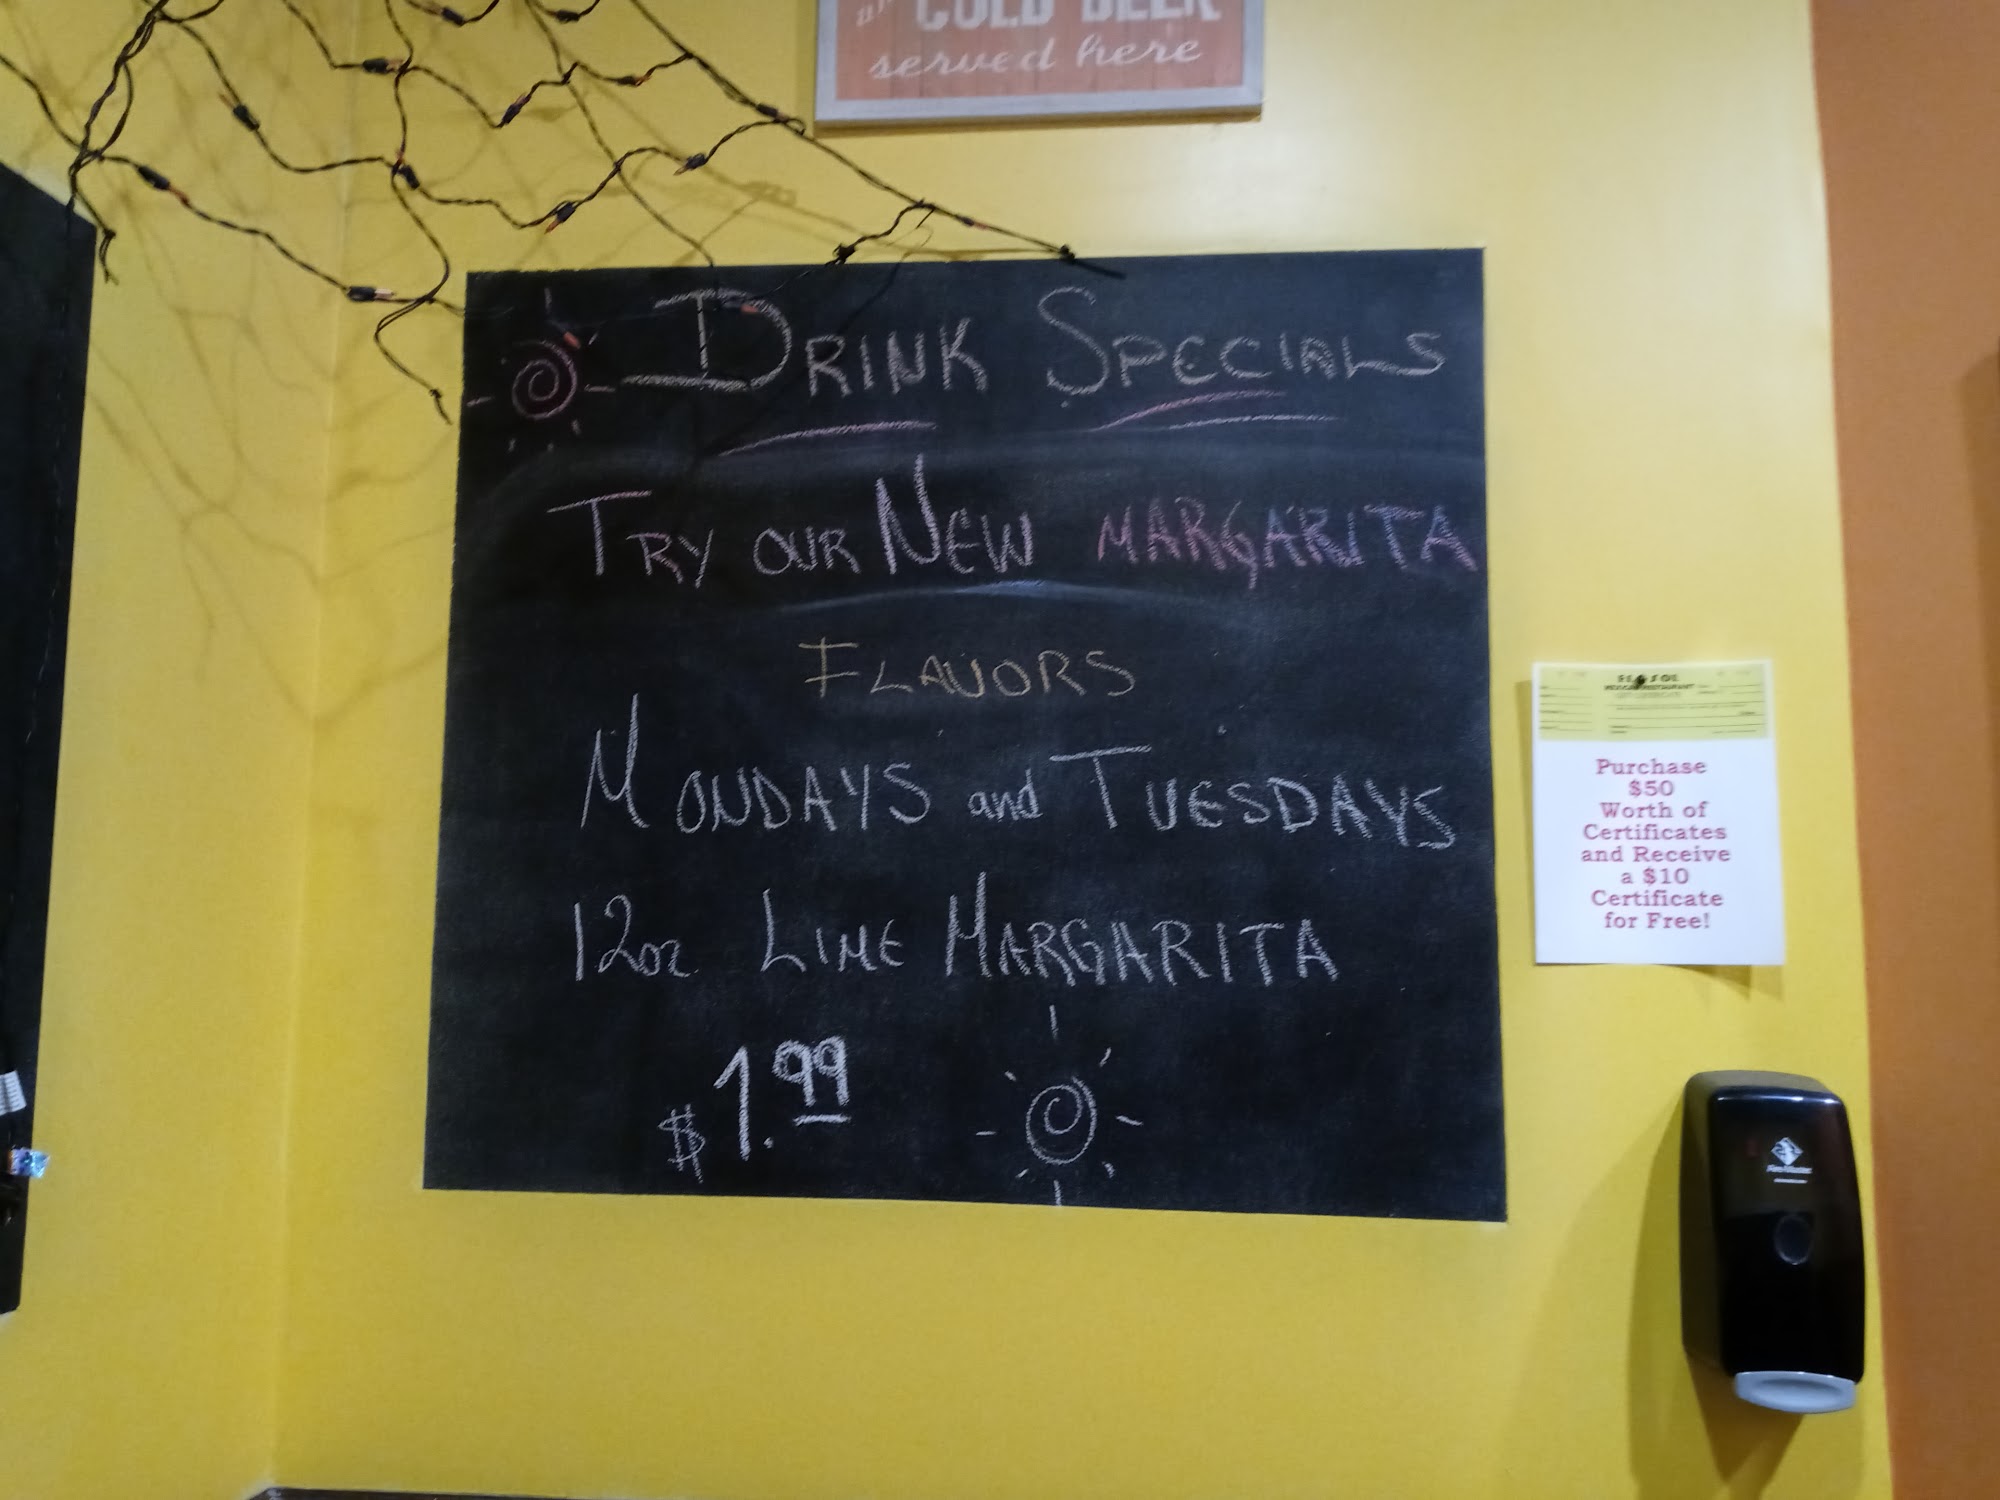 COLD BEER
served here
DRINK SPECIALS
TRY OUR NEW MARGARITA
FLAVORS
MONDAYS and TUESDAYS
12oz LIME MARGARITA
$1.99
EL SOL
MEXICAN RESTAURANT
Purchase
$50
Worth of
Certificates
and Receive
a $10
Certificate
for Free!